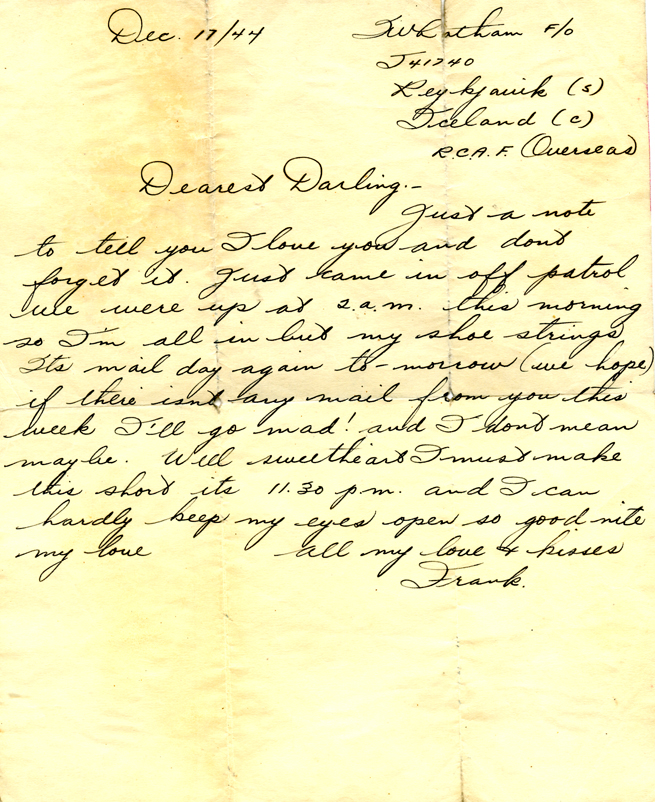 Dec. 17/44
Whatham F/O
J41740
Reykjavik (s)
Iceland (c)
R.C.A.F. Overseas
Dearest Darling.-
Just a note
to tell you I love you and dont
forget it. Just came in off patrol
we were up at 2.a.m. this morning
so I'm all in but my shoe strings
Its mail day again to-morrow (we hope)
if there isnt any mail from you this
week I'll go mad! and I dont mean
maybe. Well sweetheart I must make
this short its 11.30 p.m. and I can
hardly keep my eyes open so good nite
my love all my love & kisses
Frank.